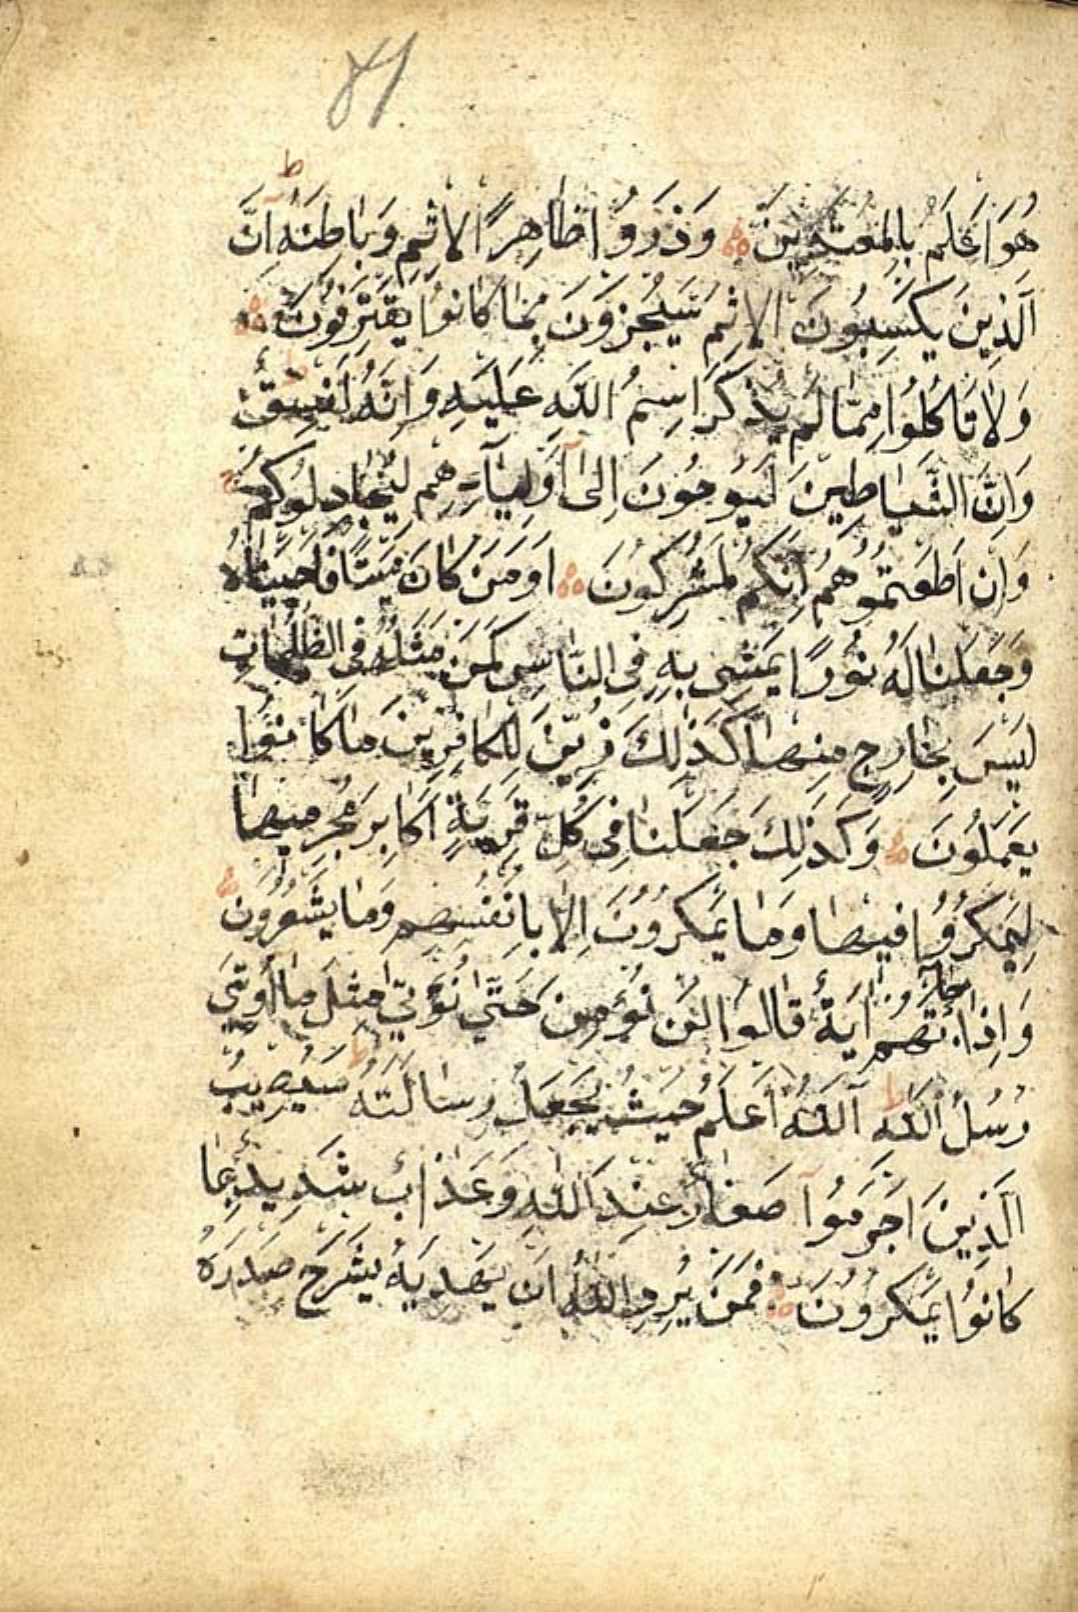 هُوَ اَعْلَمُ بِالْمُعْتَدِينَ وَذَرُوا ظَاهِرَ الْاِثْمِ وَبَاطِنَهُ ط اِنَّ
الَّذِينَ يَكْسِبُونَ الْاِثْمَ سَيُجْزَوْنَ بِمَا كَانُوا يَقْتَرِفُونَ
وَلَا تَاْكُلُوا مِمَّا لَمْ يُذْكَرِ اسْمُ اللّٰهِ عَلَيْهِ وَاِنَّهُ لَفِسْقٌ ط
وَاِنَّ الشَّيَاطِينَ لَيُوحُونَ اِلٰى اَوْلِيَآئِهِمْ لِيُجَادِلُوكُمْ ج
وَاِنْ اَطَعْتُمُوهُمْ اِنَّكُمْ لَمُشْرِكُونَ اَوَمَنْ كَانَ مَيْتًا فَاَحْيَيْنَاهُ
وَجَعَلْنَا لَهُ نُورًا يَمْشِى بِهِ فِى النَّاسِ كَمَنْ مَثَلُهُ فِى الظُّلُمَاتِ
لَيْسَ بِخَارِجٍ مِنْهَا كَذٰلِكَ زُيِّنَ لِلْكَافِرِينَ مَا كَانُوا
يَعْمَلُونَ وَكَذٰلِكَ جَعَلْنَا فِى كُلِّ قَرْيَةٍ اَكَابِرَ مُجْرِمِيهَا
لِيَمْكُرُوا فِيهَا وَمَا يَمْكُرُونَ اِلَّا بِاَنْفُسِهِمْ وَمَا يَشْعُرُونَ
وَاِذَا جَآءَتْهُمْ اٰيَةٌ قَالُوا لَنْ نُؤْمِنَ حَتّٰى نُؤْتٰى مِثْلَ مَا اُوتِىَ
رُسُلُ اللّٰهِ ط اَللّٰهُ اَعْلَمُ حَيْثُ يَجْعَلُ رِسَالَتَهُ ط سَيُصِيبُ
الَّذِينَ اَجْرَمُوا صَغَارٌ عِنْدَ اللّٰهِ وَعَذَابٌ شَدِيدٌ بِمَا
كَانُوا يَمْكُرُونَ فَمَنْ يُرِدِ اللّٰهُ اَنْ يَهْدِيَهُ يَشْرَحْ صَدْرَهُ